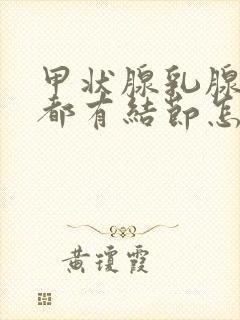 甲状腺乳腺
都有結節怎
黄瓊霞